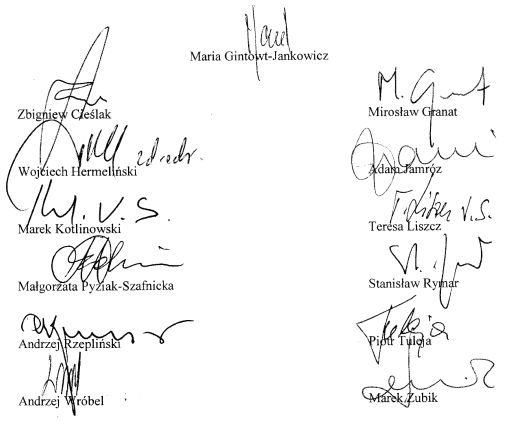 Maria Gintowt-Jankowicz
Zbigniew Cieślak
Mirosław Granat
M. Granat
Wojciech Hermeliński
zd. odr.
Adam Jamróz
Marek Kotlinowski
M. V. S.
Teresa Liszcz
T. Liszcz v.s.
Małgorzata Pyziak-Szafnicka
Stanisław Rymar
Andrzej Rzepliński
Piotr Tuleja
Tuleja
Andrzej Wróbel
Marek Zubik